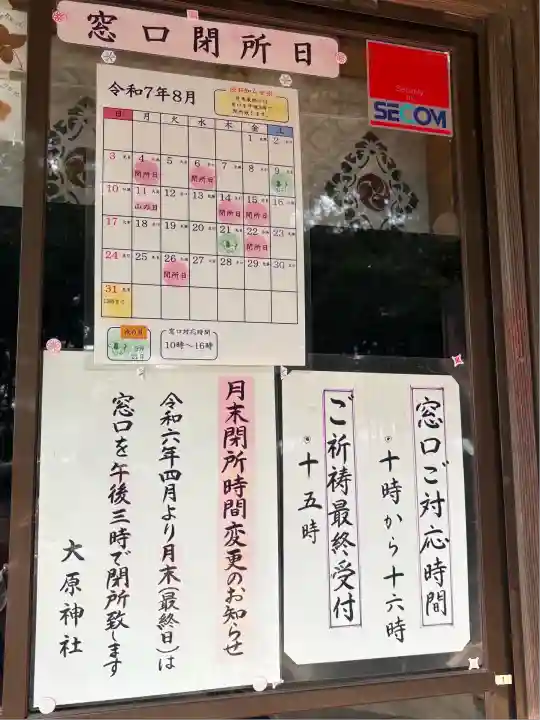 窓口閉所日
SECOM
令和7年8月
日 月 火 水 木 金 土
1 2
3 4 5 6 7 8 9
閉所日 閉所日
10 11 12 13 14 15 16
山の日 閉所日 閉所日
17 18 19 20 21 22 23
閉所日
24 25 26 27 28 29 30
閉所日
31
窓口対応時間
10時～16時
窓口ご対応時間
十時から十六時
ご祈祷最終受付
十五時
月末閉所時間変更のお知らせ
令和六年四月より月末(最終日)は
窓口を午後三時で閉所致します
大原神社